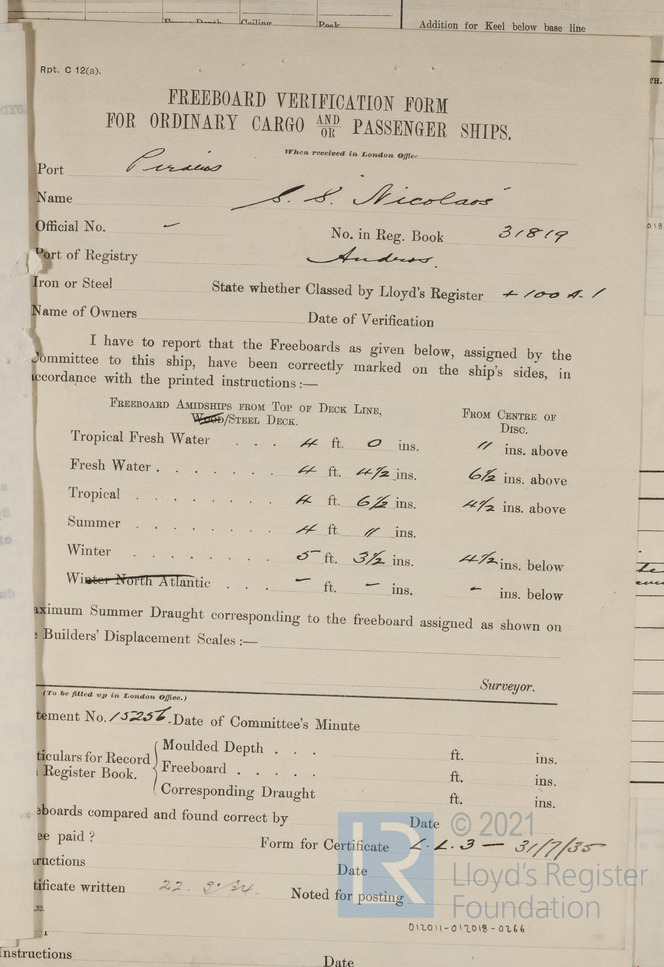 Addition for Keel below base line
Rpt. C 12(a).
FREEBOARD VERIFICATION FORM
FOR ORDINARY CARGO AND/OR PASSENGER SHIPS.
When received in London Office
Port Piraeus
Name S. S. Nicolaos
Official No. -
No. in Reg. Book 31819
Port of Registry Andros.
Iron or Steel State whether Classed by Lloyd's Register + 100 A.1
Name of Owners Date of Verification
I have to report that the Freeboards as given below, assigned by the
Committee to this ship, have been correctly marked on the ship's sides, in
accordance with the printed instructions:—
FREEBOARD AMIDSHIPS FROM TOP OF DECK LINE,
WOOD/STEEL DECK.
FROM CENTRE OF
DISC.
Tropical Fresh Water . . . 4 ft. 0 ins. 11 ins. above
Fresh Water . . . . . . . 4 ft. 4½ ins. 6½ ins. above
Tropical . . . . . . . . 4 ft. 6½ ins. 4½ ins. above
Summer . . . . . . . . 4 ft 11 ins.
Winter . . . . . . . . 5 ft. 3½ ins. 4½ ins. below
Winter North Atlantic . . . - ft. - ins. - ins. below
aximum Summer Draught corresponding to the freeboard assigned as shown on
e Builders' Displacement Scales :—
Surveyor.
(To be filled up in London Office.)
tement No. 15256. Date of Committee's Minute
ticulars for Record
Register Book.
Moulded Depth . . . ft. ins.
Freeboard . . . . . ft. ins.
Corresponding Draught ft. ins.
eboards compared and found correct by Date
ee paid ? Form for Certificate L.L.3 — 31/7/35
tructions Date
tificate written 22. 3/34. Noted for posting
© 2021
LR
Lloyd's Register
Foundation
012011-012018-0266
Instructions Date